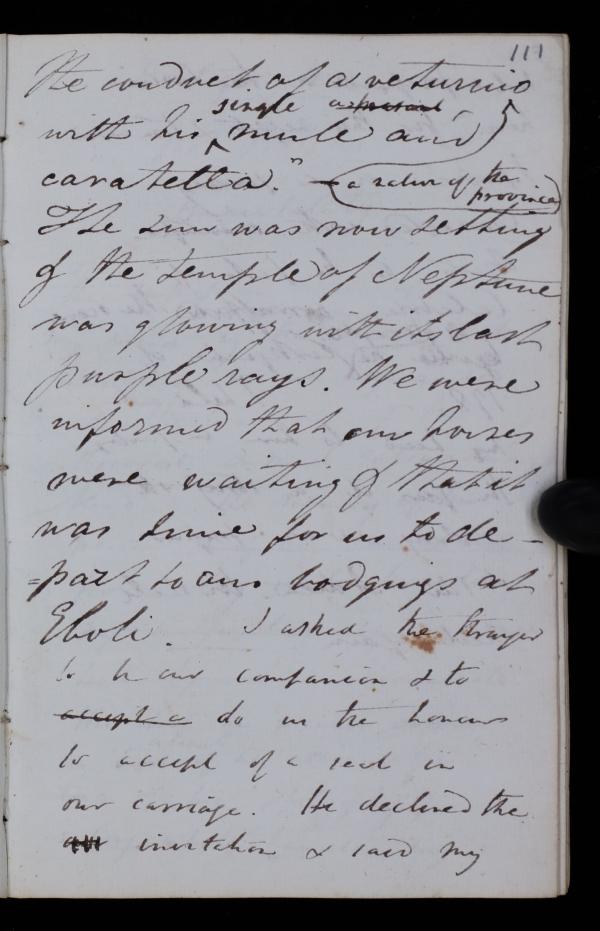 111
the conduct of a veturino
single animal
with his mule and
caratella." – a native of the
province
The sun was now setting
& the temple of Neptune
was glowing with its last
purple rays. We were
informed that our horses
were waiting & that it
was time for us to de-
=part to our lodgings at
Eboli. I asked the stranger
to be our companion & to
accept a do us the honour
to accept of a seat in
our carriage. He declined the
invitation & said my